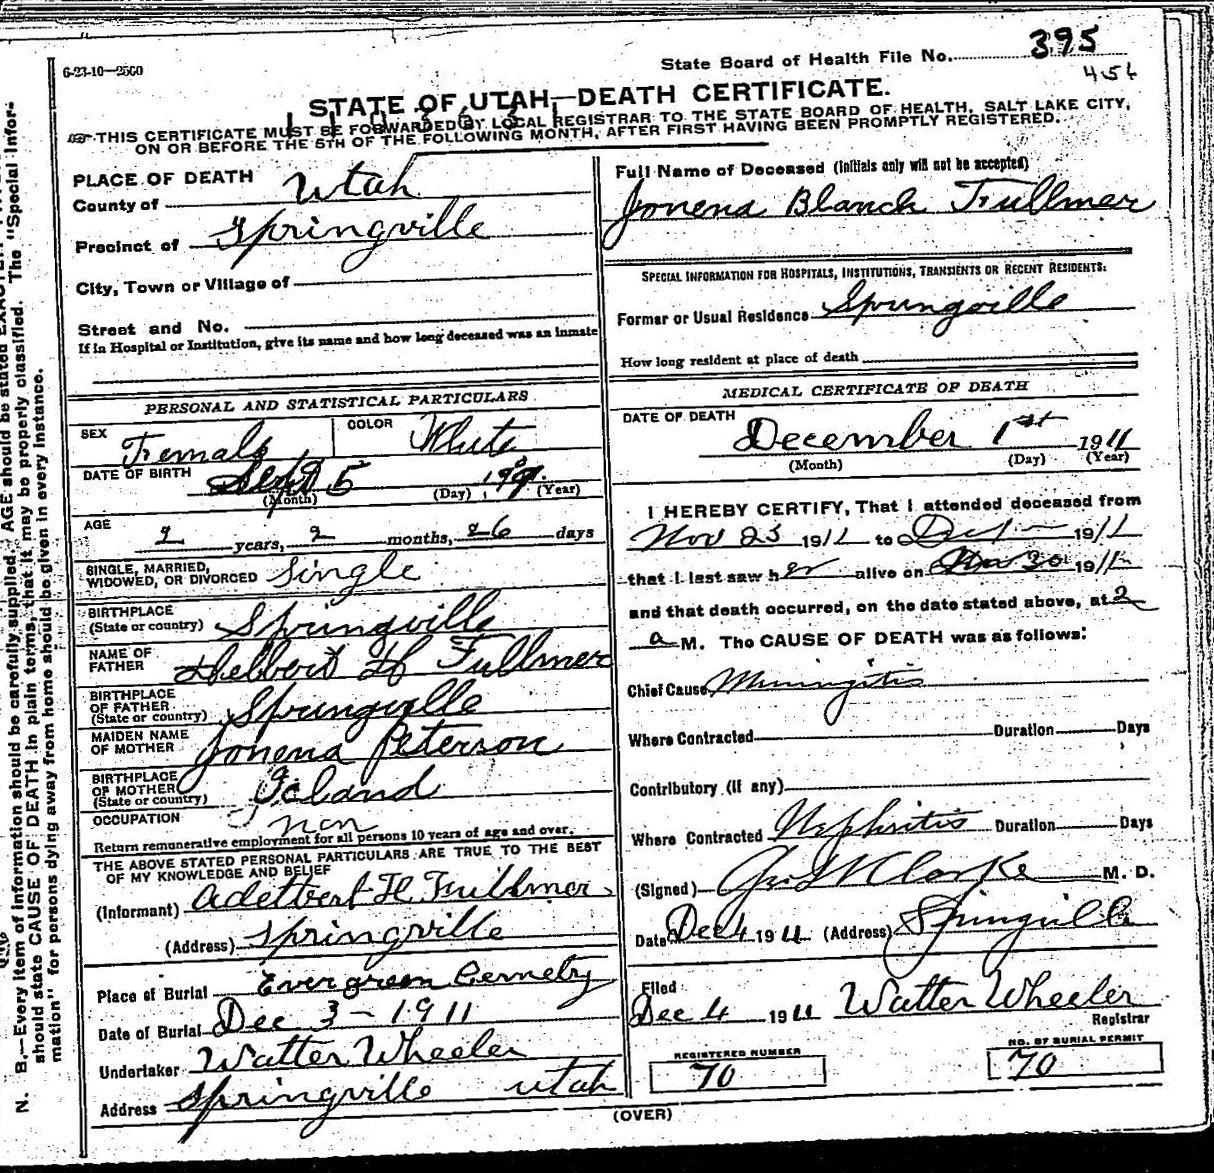 6-23-10—25C0
State Board of Health File No. 395
456
STATE OF UTAH—DEATH CERTIFICATE.
THIS CERTIFICATE MUST BE FORWARDED BY LOCAL REGISTRAR TO THE STATE BOARD OF HEALTH, SALT LAKE CITY,
ON OR BEFORE THE 5TH OF THE FOLLOWING MONTH, AFTER FIRST HAVING BEEN PROMPTLY REGISTERED.
PLACE OF DEATH
County of Utah
Precinct of Springville
City, Town or Village of
Street and No.
If in Hospital or Institution, give its name and how long deceased was an inmate
PERSONAL AND STATISTICAL PARTICULARS
SEX Female
COLOR White
DATE OF BIRTH Sept 5
(Month) (Day) (Year)
AGE
years, 2 months, 26 days
SINGLE, MARRIED,
WIDOWED, OR DIVORCED Single
BIRTHPLACE
(State or country) Springville
NAME OF
FATHER Delbert H Fullmer
BIRTHPLACE
OF FATHER
(State or country) Springville
MAIDEN NAME
OF MOTHER Jonena Peterson
BIRTHPLACE
OF MOTHER
(State or country) Iceland
OCCUPATION non
Return remunerative employment for all persons 10 years of age and over.
THE ABOVE STATED PERSONAL PARTICULARS ARE TRUE TO THE BEST
OF MY KNOWLEDGE AND BELIEF
(Informant) Adelbert H Fullmer
(Address) Springville
Place of Burial Evergreen Cemetry
Date of Burial Dec 3 - 1911
Undertaker Walter Wheeler
Address Springville Utah
Full Name of Deceased (Initials only will not be accepted)
Jonena Blanch Fullmer
SPECIAL INFORMATION FOR HOSPITALS, INSTITUTIONS, TRANSIENTS OR RECENT RESIDENTS:
Former or Usual Residence Springville
How long resident at place of death
MEDICAL CERTIFICATE OF DEATH
DATE OF DEATH
December 1st 1911
(Month) (Day) (Year)
I HEREBY CERTIFY, That I attended deceased from
Nov 23 1911 to Dec 1 1911
that I last saw her alive on Nov 30 1911
and that death occurred, on the date stated above, at 2
a M. The CAUSE OF DEATH was as follows:
Chief Cause Miningitis
Where Contracted Duration Days
Contributory (if any)
Where Contracted Nephritis Duration Days
(Signed) Clarke M. D.
Date Dec 4 1911 (Address) Springville
Filed
Dec 4 1911 Walter Wheeler
Registrar
REGISTERED NUMBER
70
NO. OF BURIAL PERMIT
70
(OVER)
N. B.—Every item of information should be carefully supplied. AGE should be stated EXACTLY.
should state CAUSE OF DEATH in plain terms, that it may be properly classified. The "Special Infor-
mation" for persons dying away from home should be given in every instance.